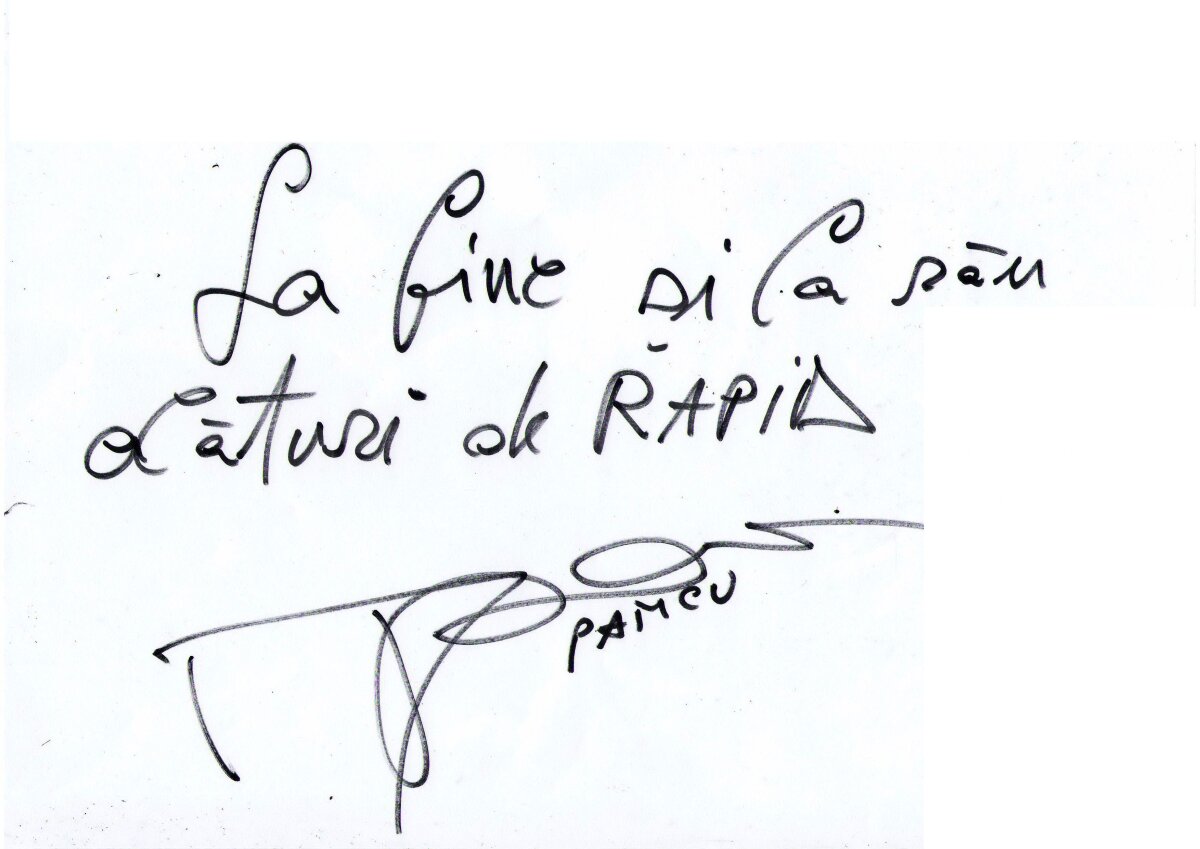 La bine și la rău
alături de RAPID
PANCU